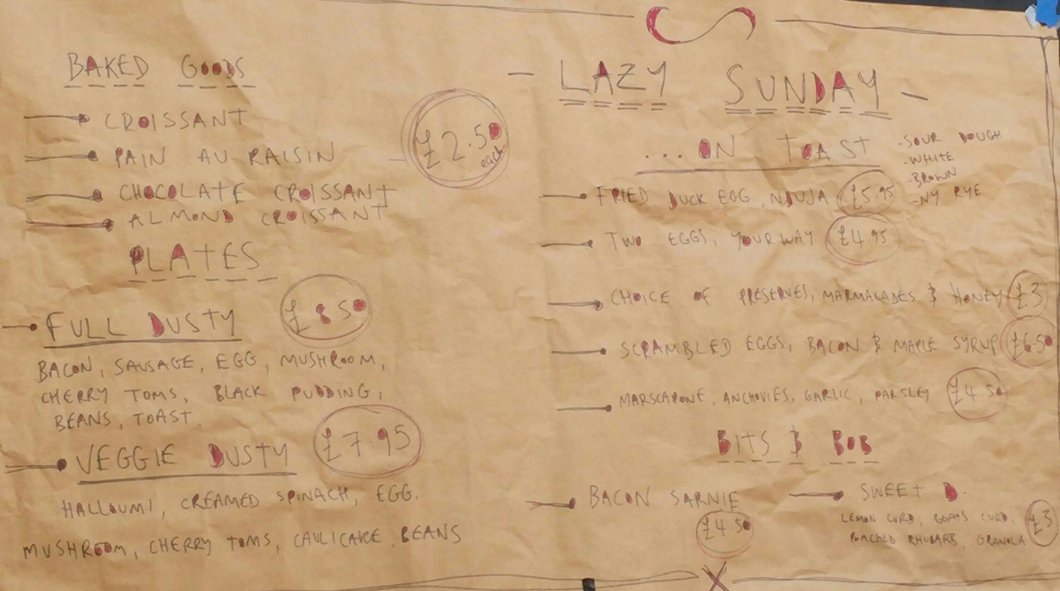 BAKED GOODS
CROISSANT
PAIN AU RAISIN
CHOCOLATE CROISSANT
ALMOND CROISSANT
£2.50 each
PLATES
FULL DUSTY £8.50
BACON, SAUSAGE, EGG, MUSHROOM,
CHERRY TOMS, BLACK PUDDING,
BEANS, TOAST.
VEGGIE DUSTY £7.95
HALLOUMI, CREAMED SPINACH, EGG.
MUSHROOM, CHERRY TOMS, CAULICAKE, BEANS
- LAZY SUNDAY -
...ON TOAST
-SOUR DOUGH
-WHITE
-BROWN
-NY RYE
FRIED DUCK EGG, NDUJA £5.95
TWO EGGS, YOUR WAY £4.95
CHOICE OF PRESERVES, MARMALADES & HONEY £3
SCRAMBLED EGGS, BACON & MAPLE SYRUP £6.50
MARSCAPONE, ANCHOVIES, GARLIC, PARSLEY £4.50
BITS & BOB
BACON SARNIE
£4.50
SWEET D.
LEMON CURD, GOATS CURD
POACHED RHUBARB, GRANOLA £3